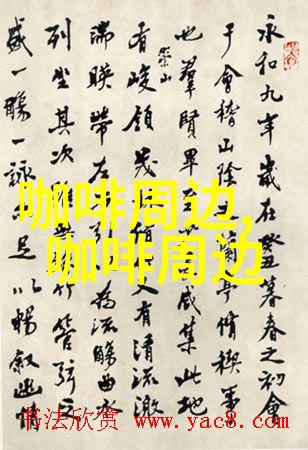 永和九年歲在癸丑暮春之初會
于會稽山陰之蘭亭脩禊事
也羣賢畢至咸集此地
崇山
有峻領茂林脩又有清流激
湍暎帶左右引為流觴曲水
列坐其次雖無竹管弦之
盛一觴一詠亦足以暢敘幽情
咖啡周边,
咖啡周边
书法欣赏 www.yac8.com